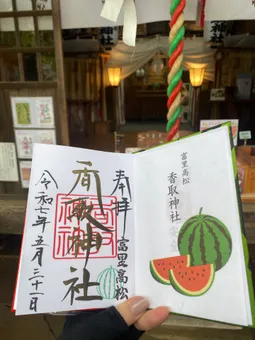 奉拝
富里高松
香取神社
令和七年五月二十一日
富里高松
香取神社